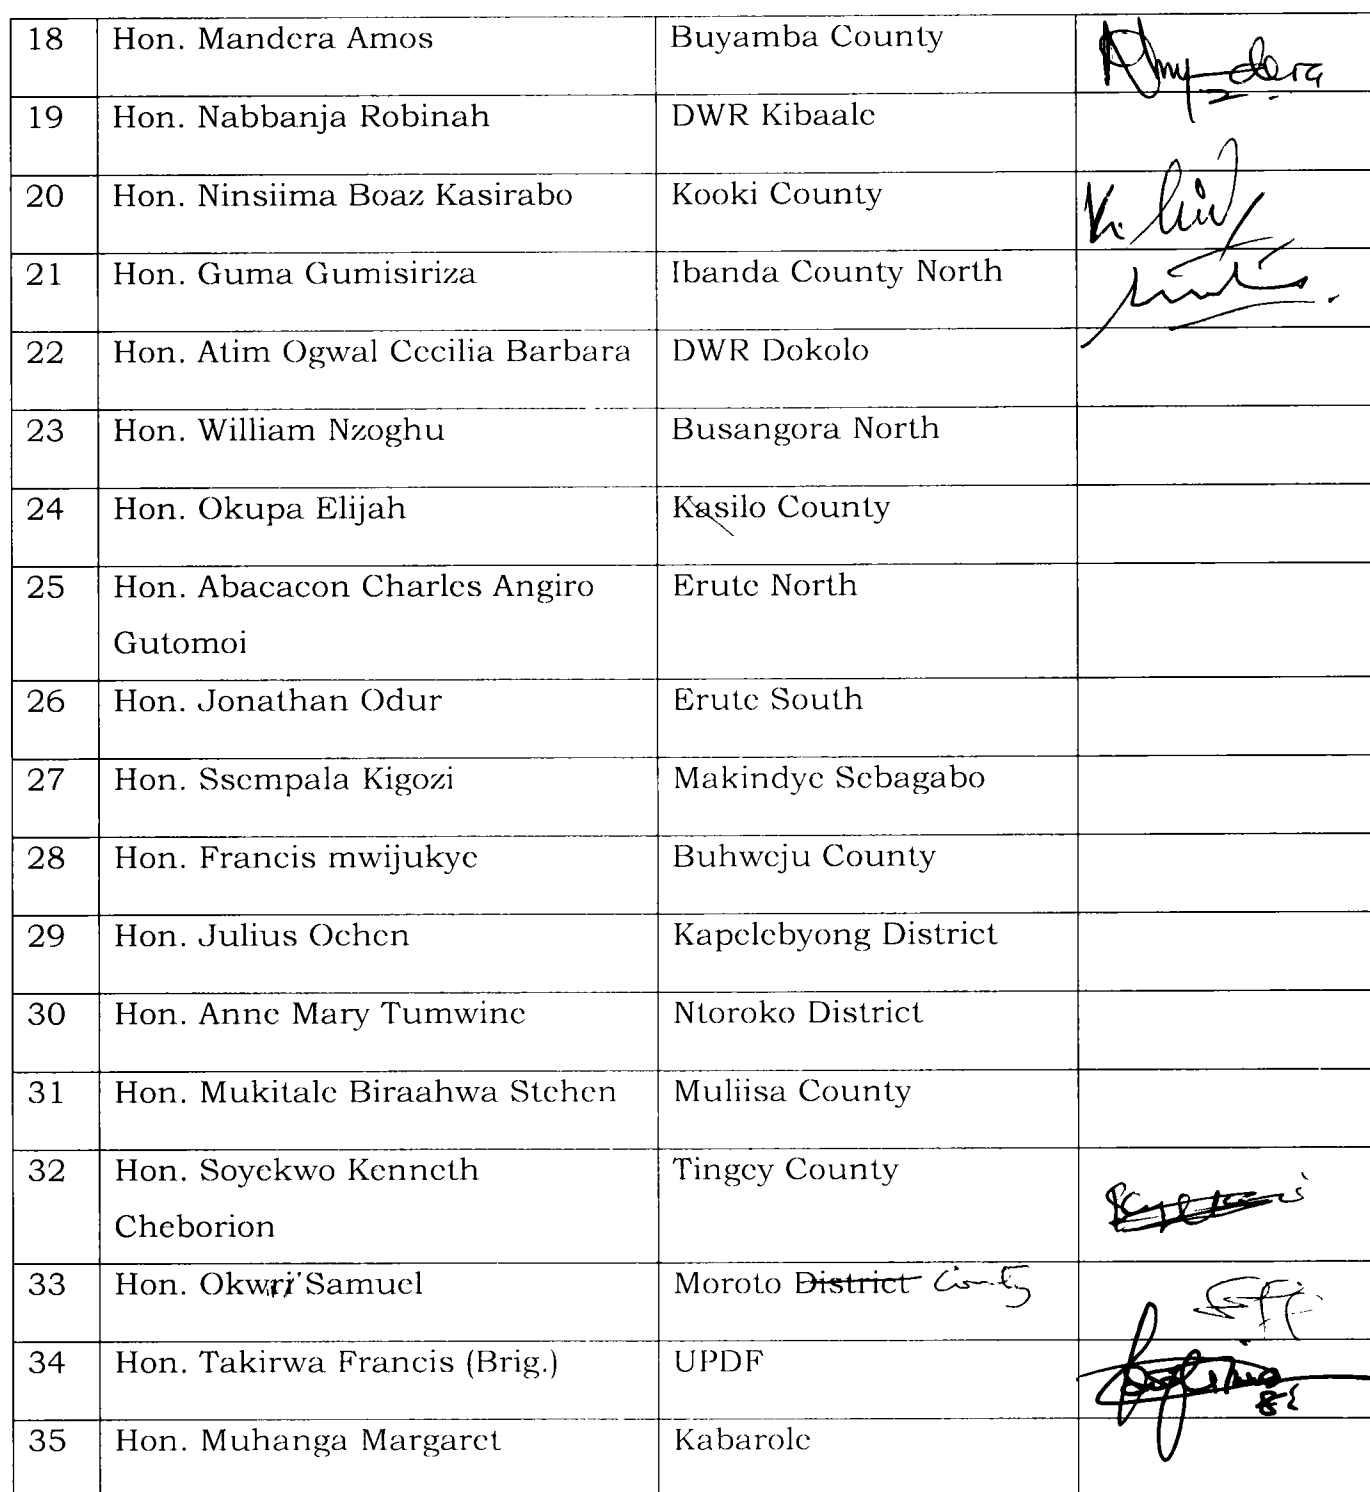 18 Hon. Mandera Amos Buyamba County
19 Hon. Nabbanja Robinah DWR Kibaale
20 Hon. Ninsiima Boaz Kasirabo Kooki County
21 Hon. Guma Gumisiriza Ibanda County North
22 Hon. Atim Ogwal Cecilia Barbara DWR Dokolo
23 Hon. William Nzoghu Busangora North
24 Hon. Okupa Elijah Kasilo County
25 Hon. Abacacon Charles Angiro Erute North
Gutomoi
26 Hon. Jonathan Odur Erute South
27 Hon. Ssempala Kigozi Makindye Sebagabo
28 Hon. Francis mwijukye Buhweju County
29 Hon. Julius Ochen Kapelebyong District
30 Hon. Anne Mary Tumwine Ntoroko District
31 Hon. Mukitale Biraahwa Stehen Muliisa County
32 Hon. Soyekwo Kenneth Tingey County
Cheborion
33 Hon. Samuel Moroto District County
34 Hon. Takirwa Francis (Brig.) UPDF
35 Hon. Muhanga Margaret Kabarole